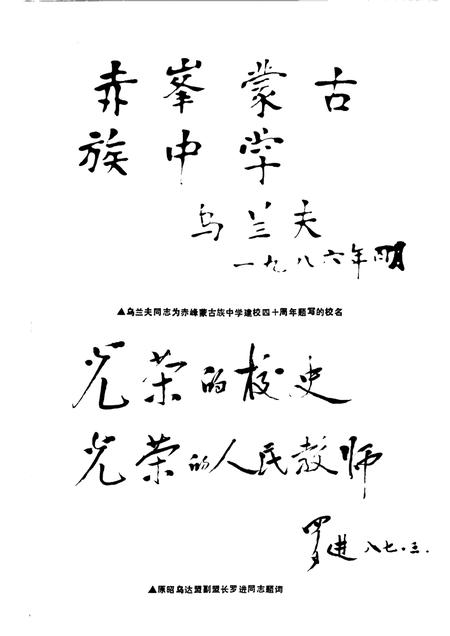 赤峯蒙古
族中学
乌兰夫
一九八六年四月
▲乌兰夫同志为赤峰蒙古族中学建校四十周年题写的校名
光荣的校史
光荣的人民教师
罗进 八七·三·
▲原昭乌达盟副盟长罗进同志题词